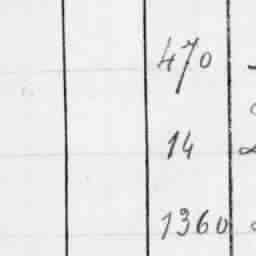 470
14
1360